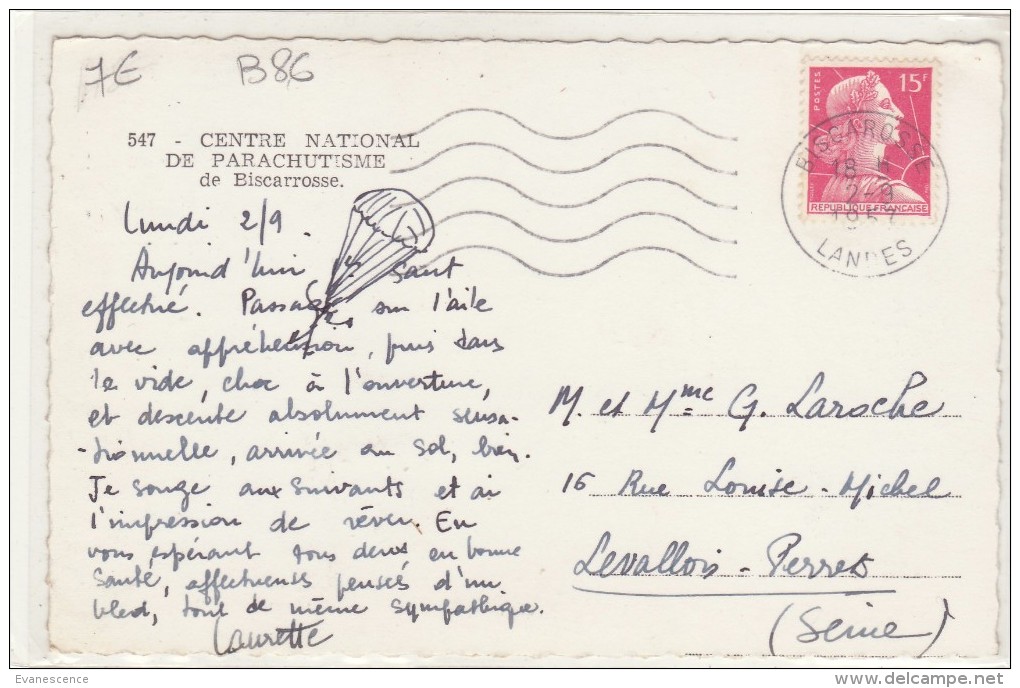 7€ B86
547 - CENTRE NATIONAL
DE PARACHUTISME
de Biscarrosse.
POSTES
15F
REPUBLIQUE FRANCAISE
BISCARROSSE
18 H
2-9
1957
LANDES
Lundi 2/9.
Aujourd'hui 1er saut
effectué. Passage sur l'aile
avec appréhension, puis dans
le vide, choc à l'ouverture,
et descente absolument sensa-
-tionnelle, arrivée au sol, bien.
Je songe aux suivants et ai
l'impression de rêver. En
vous espérant tous deux en bonne
santé, affectueuses pensées d'un
bled, tout de même sympathique.
Laurette
M. et Mme G. Laroche
16 Rue Louise-Michel
Levallois-Perret
(Seine)
Evanescence
www.delcampe.net